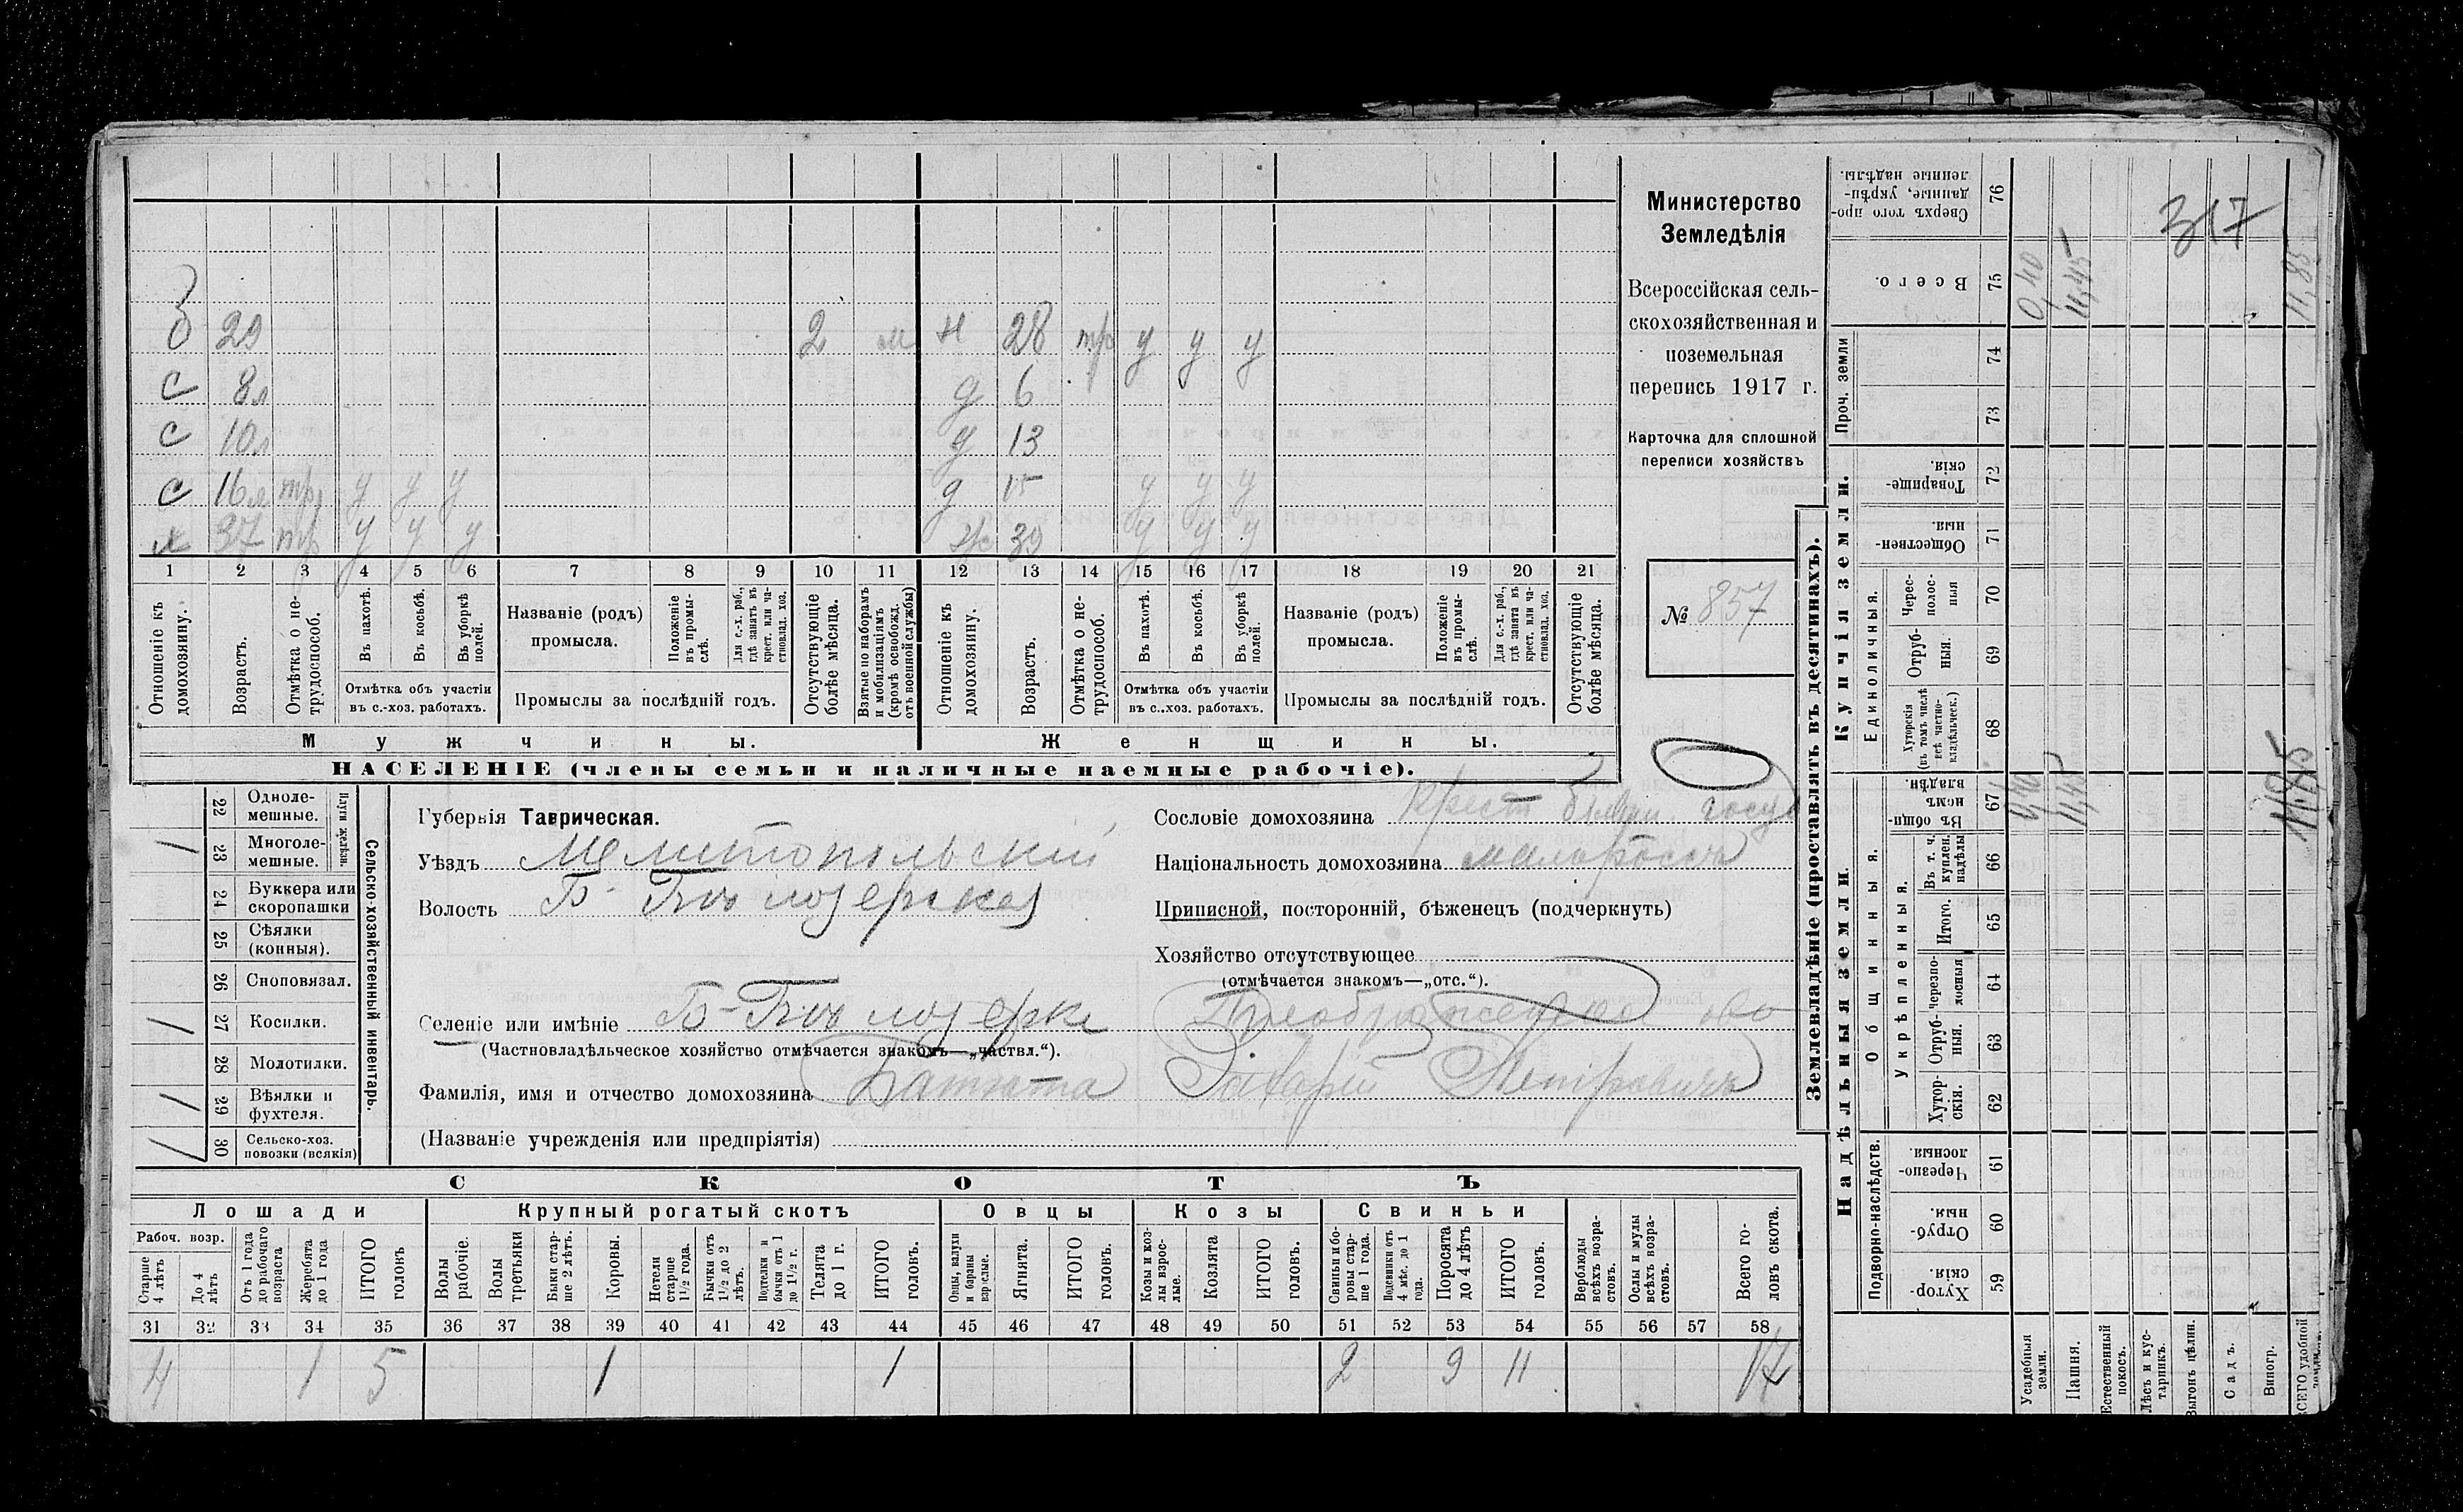 б 29 2 м н 28 тр у у у
с 8л д 6
с 10л д 13
с 16л тр у у у д 15 у у у
х 37 тр у у у ж 39 у у у
1 2 3 4 5 6 7 8 9 10 11 12 13 14 15 16 17 18 19 20 21
Отношеніе къ домохозяину.
Возрастъ.
Отмѣтка о не-трудоспособ.
Въ пахотѣ.
Въ косьбѣ.
Въ уборкѣ полей.
Отмѣтка объ участіи въ с.-хоз. работахъ.
Названіе (родъ) промысла.
Положеніе въ промы-слѣ.
Для с.-х. раб., гдѣ занятъ въ крест. или ча-стновлад. хоз.
Промыслы за послѣдній годъ.
Отсутствующіе болѣе мѣсяца.
Взятые по наборамъ и мобилизаціямъ (кромѣ освобожд. отъ военной службы)
Отношеніе къ домохозяину.
Возрастъ.
Отмѣтка о не-трудоспособ.
Въ пахотѣ.
Въ косьбѣ.
Въ уборкѣ полей.
Отмѣтка объ участіи въ с..хоз. работахъ.
Названіе (родъ) промысла.
Положеніе въ промы-слѣ.
Для с.-х. раб., гдѣ занята въ крест. или ча-стновлад. хоз.
Промыслы за послѣдній годъ.
Отсутствующіе болѣе мѣсяца.
Мужчины.
Женщины.
НАСЕЛЕНІЕ (члены семьи и наличные наемные рабочіе).
Министерство
Земледѣлія
Всероссійская сель-
скохозяйственная и
поземельная
перепись 1917 г.
Карточка для сплошной
переписи хозяйствъ
№ 857
22 Одноле-мешные.
23 Многоле-мешные. 1
Плуги желѣзн.
24 Буккера или скоропашки
25 Сѣялки (конныя).
26 Сноповязал.
27 Косилки. 1
28 Молотилки.
29 Вѣялки и фухтеля. 1
30 Сельско-хоз. повозки (всякія) 1
Сельско-хозяйственный инвентарь.
Губернія Таврическая.
Уѣздъ Мелитопольскій
Волость Б-Бѣлозерская
Селеніе или имѣніе Б-Бѣлозерка Преображенское
(Частновладѣльческое хозяйство отмѣчается знакомъ—„частвл.“).
Фамилія, имя и отчество домохозяина Захарій Петровичъ
(Названіе учрежденія или предпріятія)
Сословіе домохозяина Крест бывш госуд
Національность домохозяина малороссъ
Приписной, посторонній, бѣженецъ (подчеркнуть)
Хозяйство отсутствующее
(отмѣчается знакомъ—„отс.“).
СКОТЪ
Лошади
Крупный рогатый скотъ
Овцы
Козы
Свиньи
Рабоч. возр.
Старше 4 лѣтъ
До 4 лѣтъ
Отъ 1 года до рабочаго возраста
Жеребята до 1 года
ИТОГО головъ
Волы рабочіе.
Волы третьяки
Быки стар-ше 2 лѣтъ.
Коровы.
Нетели старше 1½ года.
Бычки отъ 1½ до 2 лѣтъ.
Подтелки и бычки отъ 1 до 1½ г.
Телята до 1 г.
ИТОГО головъ.
Овцы, валухи и бараны взрослые.
Ягнята.
ИТОГО головъ.
Козы и коз-лы взрос-лые.
Козлята
ИТОГО головъ.
Свиньи и бо-ровы стар-ше 1 года.
Подсвинки отъ 4 мѣс. до 1 года.
Поросята до 4 лѣтъ
ИТОГО головъ.
Верблюды всѣхъ возра-стовъ.
Ослы и мулы всѣхъ возра-стовъ.
Всего го-ловъ скота.
31 32 33 34 35 36 37 38 39 40 41 42 43 44 45 46 47 48 49 50 51 52 53 54 55 56 57 58
4 1 5 1 1 2 9 11 17
Землевладѣніе (проставлять въ десятинахъ).
Надѣльныя земли.
Купчія земли.
Проч. земли
Подворно-наслѣдств.
Общинныя.
Укрѣпленныя.
Единоличныя.
76 Сверхъ того про-данные, укрѣп-ленные надѣлы.
75 Всего. 0,40 11,45 11,85
317
74
73
72 Товарище-скія.
71 Обществен-ныя.
70 Черес-полос-ныя
69 Отруб-ныя.
68 Хуторскія (въ томъ числѣ всѣ частно-владѣльческ.)
67 Въ общи-номъ владѣн. 0,40 11,45 11,85
66 Въ т. ч. куплен. надѣлы
65 Итого.
64 Черезпо-лосныя
63 Отруб-ныя.
62 Хутор-скія.
61 Черезпо-лосныя.
60 Отруб-ныя.
59 Хутор-скія.
Усадебныя земли.
Пашня.
Естественный покосъ.
Лѣсъ и кус-тарникъ.
Выгонъ цѣлин.
Садъ.
Виногр.
ВСЕГО удобной